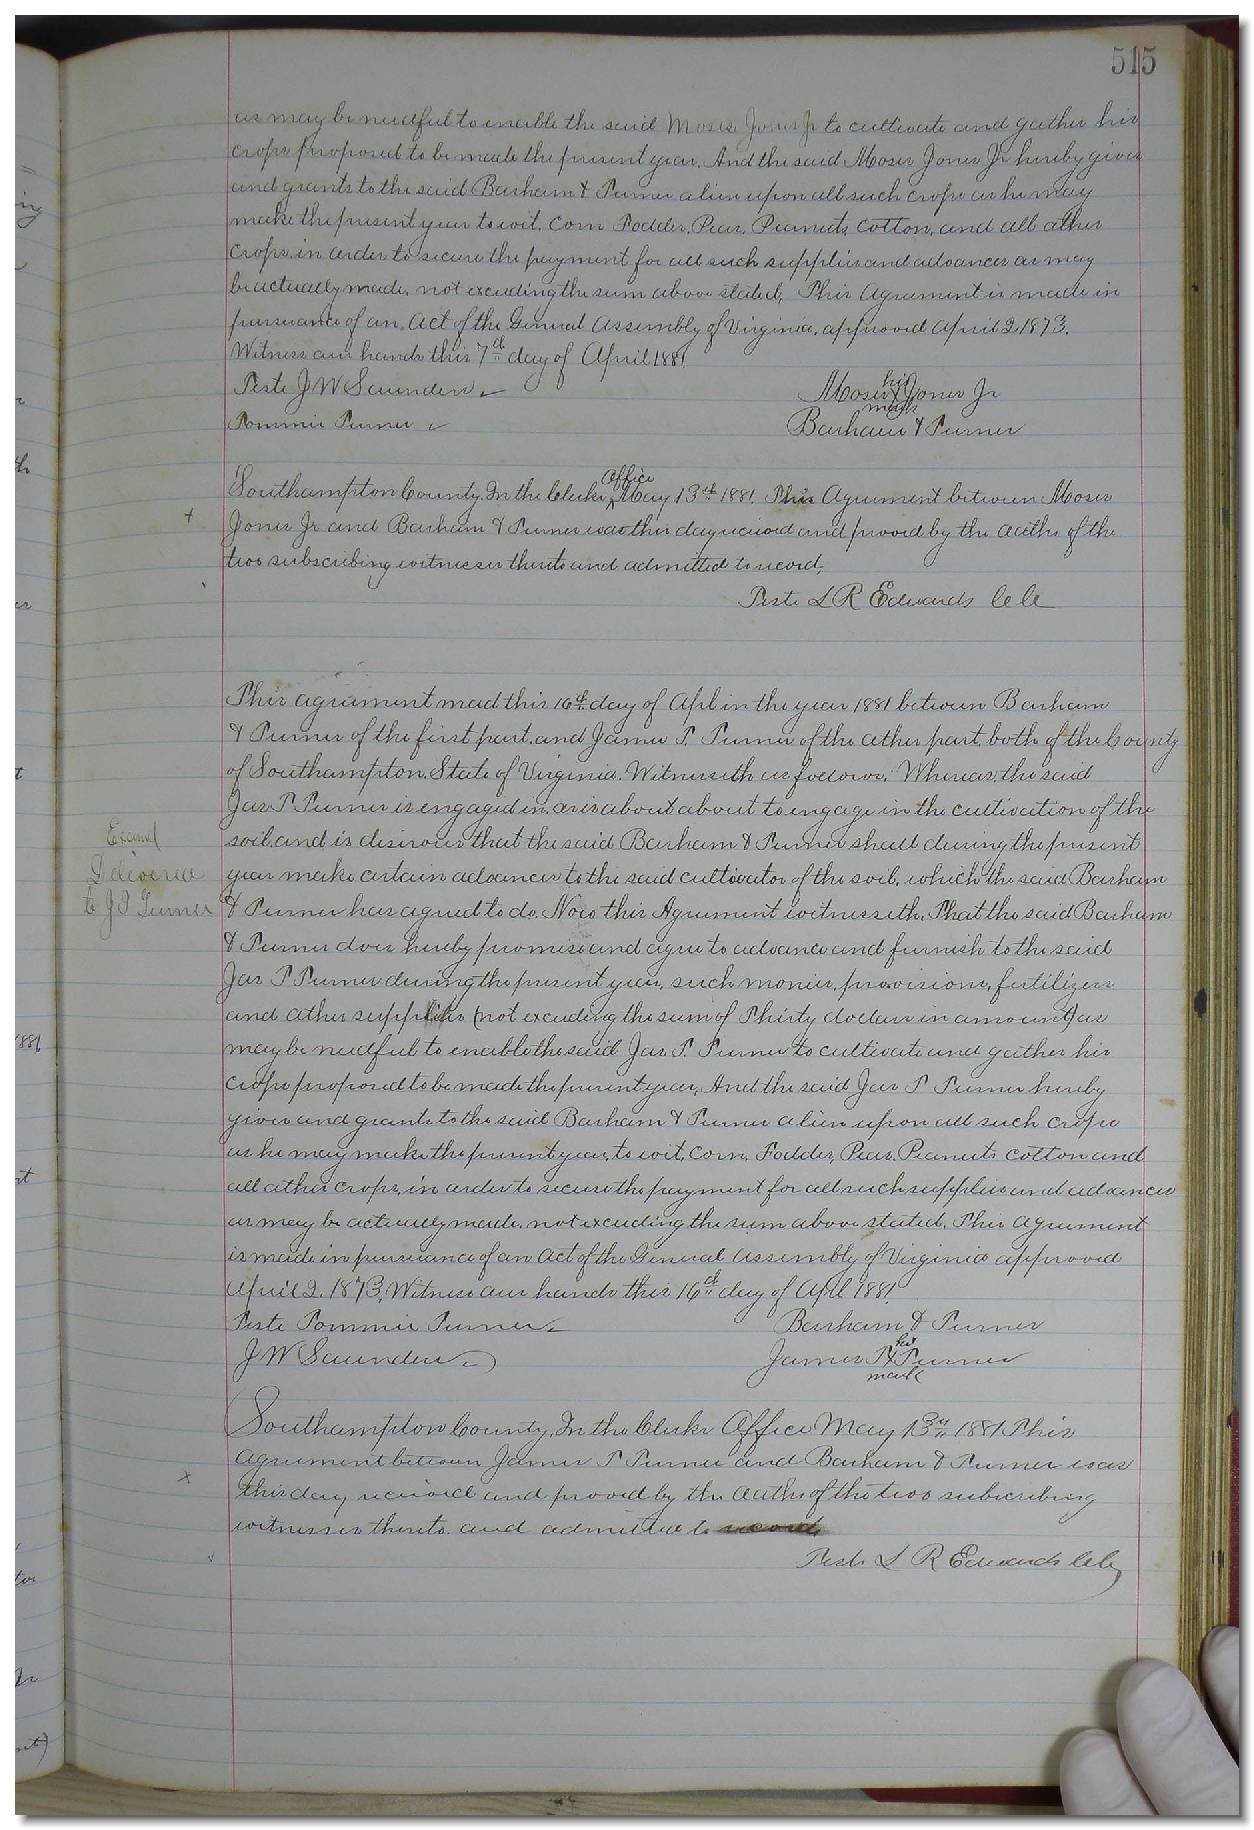 515
as may be needful to enable the said Moses Jones Jr to cultivate and gather his
crops proposed to be made the present year. And the said Moses Jones Jr hereby gives
and grants to the said Barham & Turner a lien upon all such crops as he may
make the present year to wit, Corn Fodder, Peas, Peanuts, Cotton, and all other
crops, in order to secure the payment for all such supplies and advances as may
be actually made, not exceeding the sum above stated, This Agreement is made in
pursuance of an Act of the General Assembly of Virginia, approved April 2 1873.
Witness our hands this 7th day of April 1881
Teste J W Saunders
Moses his X mark Jones Jr
Tommie Turner
Barham & Turner
Southampton County, In the Clerks Office May 13th 1881. This Agreement between Moses
Jones Jr and Barham & Turner was this day received and proved by the oaths of the
two subscribing witnesses thereto and admitted to record,
Teste L R Edwards CC
This agreement mad this 16th day of Apl in the year 1881 between Barham
& Turner of the first part, and James T. Turner of the other part, both of the County
of Southampton, State of Virginia. Witnesseth as follows, Whereas, the said
Jas T Turner is engaged in, or is about about to engage in the cultivation of the
soil, and is desirous that the said Barham & Turner shall during the present
year make certain advances to the said cultivator of the soil, which the said Barham
& Turner has agreed to do. Now this Agreement witnesseth, That the said Barham
& Turner does hereby promise and agree to advance and furnish to the said
Jas T Turner during the present year, such monies, provisions, fertilizers
and other supplies (not exceeding the sum of Thirty dollars in amount) as
may be needful to enable the said Jas T. Turner to cultivate and gather his
crops proposed to be made the present year, And the said Jas T Turner hereby
gives and grants to the said Barham & Turner a lien upon all such crops
as he may make the present year, to wit, Corn, Fodder, Peas, Peanuts Cotton and
all other crops, in order to secure the payment for all such supplies and advances
as may be actually made, not exceeding the sum above stated, This Agreement
is made in pursuance of an Act of the General Assembly of Virginia approved
April 2, 1873, Witness our hands this 16th day of Apl 1881
Teste Tommie Turner
Barham & Turner
J W Saunders
James T his X mark Turner
Southampton County, In the Clerks Office May 13th 1881 This
agreement between James T Turner and Barham & Turner was
this day received and proved by the oaths of the two subscribing
witnesses thereto and admitted to record
Teste L R Edwards CC
Examd
Delivered
to J T Turner